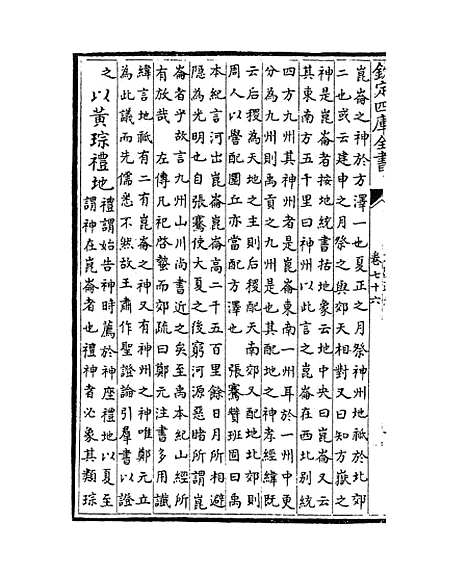 欽定四庫全書
卷七十六
崑崙之神於方澤一也夏正之月祭神州地祗於北郊
二也或云建申之月祭之與郊天相對又曰知方嶽之
神是崑崙者按地統書括地象云地中央曰崑崙又云
其東南方五千里曰神州以此言之崑崙在西北别統
四方九州其神州者是崑崙東南一州耳於一州中更
分為九州則禹貢之九州是也其配地之神孝經緯既
云后稷為天地之主則后稷配天南郊又配地北郊則
周人以嚳配圜丘亦當配方澤也　張騫贊班固曰禹
本紀言河出崑崙崑崙高二千五百里餘日月所相避
隱為光明也自張騫使大夏之後窮河源惡睹所謂崑
崙者乎故言九州山川尚書近之矣至禹本紀山經所
有放哉　左傳凡祀啓蟄而郊疏曰鄭元注書多用讖
緯言地祗有二有崑崙之神又有神州之神唯鄭元立
為此議而先儒悉不然故王肅作聖證論引羣書以證
之以黄琮禮地禮謂始告神時薦於神座禮地以夏至
謂神在崑崙者也禮神者必象其類琮